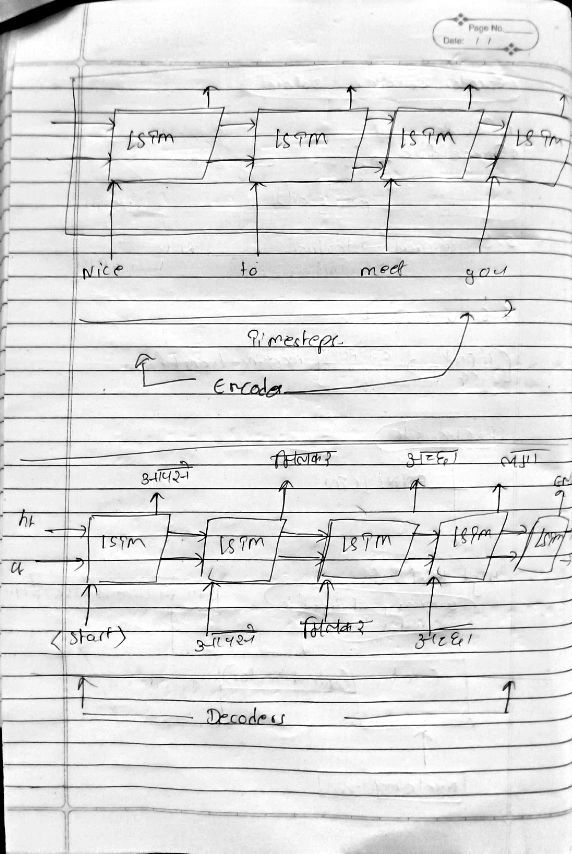 Page No.
Date: / /
LSTM LSTM LSTM LSTM
Nice to meet you
Timesteps
Encoder
आपसे मिलकर अच्छा लगा
ht LSTM LSTM LSTM LSTM LSTM
ct
<Start> आपसे मिलकर अच्छा
Decoders